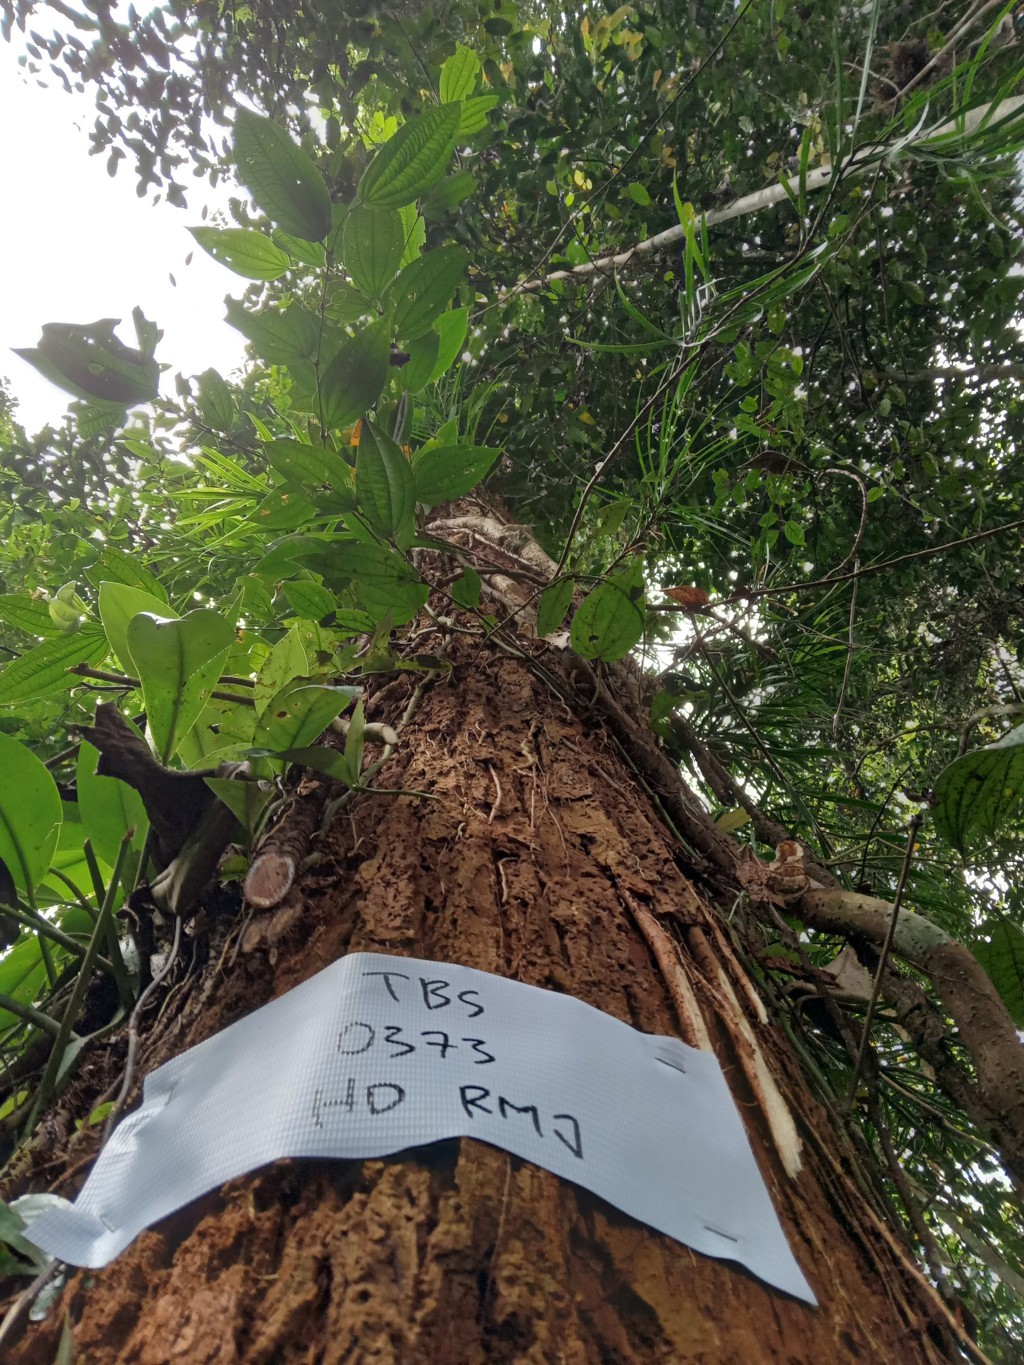 TBS
0373
HD RMJ